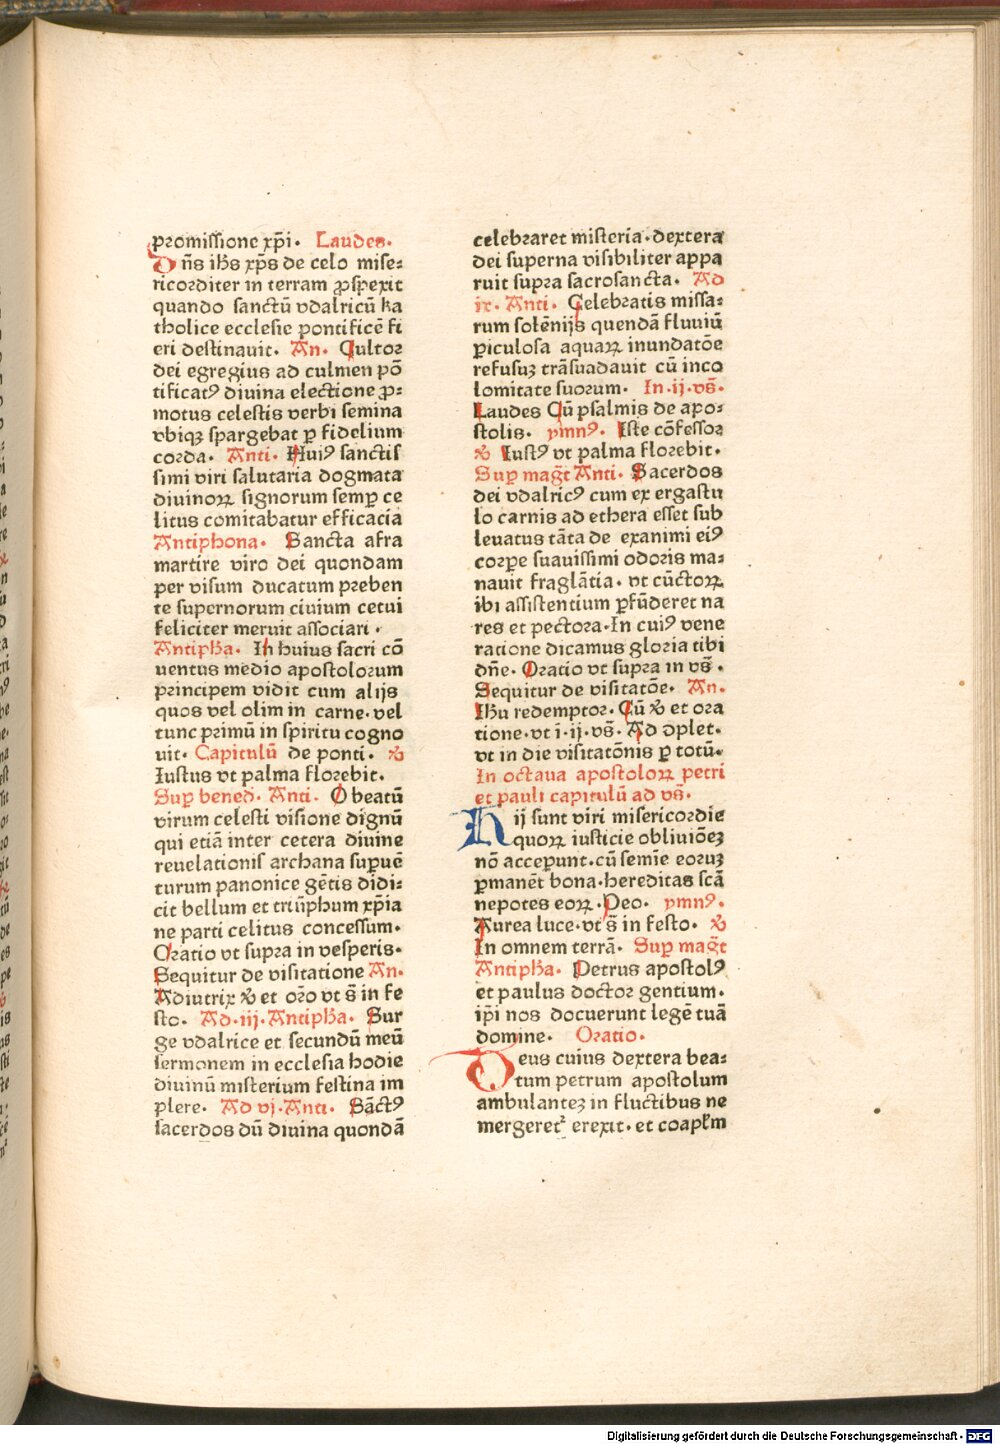 promissione xp̄i. Laudes.
Dn̄s ih̄s xp̄s de celo mise⸗
ricorditer in terram ꝓspexit
quando sanctū vdalricū ka
tholice ecclesie pontificē fi
eri destinauit. An. Cultor
dei egregius ad culmen pō
tificatꝰ diuina electione ꝓ⸗
motus celestis verbi semina
vbiqꝫ spargebat ꝑ fidelium
corda. Anti. Huiꝰ sanctis
simi viri salutaria dogmata
diuinoꝝ signorum semꝑ ce
litus comitabatur efficacia
Antiphona. Sancta afra
martire viro dei quondam
per visum ducatum preben
te supernorum ciuium cetui
feliciter meruit associari.
Antipħa. In huius sacri cō
uentus medio apostolorum
principem vidit cum alijs
quos vel olim in carne. vel
tunc primū in spiritu cogno
uit. Capitulū de ponti. ℣
Iustus vt palma florebit.
Suꝑ bened. Anti. O beatū
virum celesti visione dignū
qui etiā inter cetera diuine
reuelationis archana suꝑuē
turum panonice gētis didi⸗
cit bellum et triūphum xp̄ia
ne parti celitus concessum.
Oratio vt supra in vesperis.
Sequitur de visitatione An.
Adiutrix ℣ et or̄o vt s̄ in fe
sto. Ad .iij. Antipħa. Sur
ge vdalrice et secundū meū
sermonem in ecclesia hodie
diuinū misterium festina im
plere. Ad vj. Anti. Sāctꝰ
sacerdos dū diuina quondā
celebraret misteria. dextera
dei superna visibiliter appa
ruit supra sacrosancta. Ad
ix. Anti. Celebratis missa⸗
rum solēnijs quendā fluuiū
ꝑiculosa aquaꝝ inundatōe
refusuꝫ trāsuadauit cū inco
lomitate suorum. In .ij. vs̄.
Laudes Cū psalmis de apo⸗
stolis. ymnꝰ. Iste cōfessor
℣ Iustꝰ vt palma florebit.
Suꝑ magt̄ Anti. Sacerdos
dei vdalricꝰ cum ex ergastu
lo carnis ad ethera esset sub
leuatus tāta de exanimi eiꝰ
corꝑe suauissimi odoris ma⸗
nauit fraglātia. vt cūctoꝝ
ibi assistentium ꝑfūderet na
res et pectora. In cuiꝰ vene
ratione dicamus gloria tibi
dn̄e. Oratio vt supra in vs̄.
Sequitur de visitatōe. An.
Ihu redemptor. Cū ℣ et ora
tione. vt i. ij. vs̄. Ad ↄplet.
vt in die visitatōnis ꝑ totū.
In octaua apostoloꝝ petri
et pauli capitulū ad vs̄.
Hij sunt viri misericordie
quoꝝ iusticie obliuiōeꝫ
nō acceꝑunt. cū semīe eoruꝫ
ꝑmanēt bona. hereditas scā
nepotes eoꝝ. Deo. ymnꝰ.
Aurea luce. vt s̄ in festo. ℣
In omnem terrā. Suꝑ magt̄
Antipħa. Petrus apostolꝰ
et paulus doctor gentium.
ip̄i nos docuerunt legē tuā
domine. Oratio.
Deus cuius dextera bea⸗
tum petrum apostolum
ambulanteꝫ in fluctibus ne
mergeret᷑ erexit. et coapl̄m
Digitalisierung gefördert durch die Deutsche Forschungsgemeinschaft - DFG